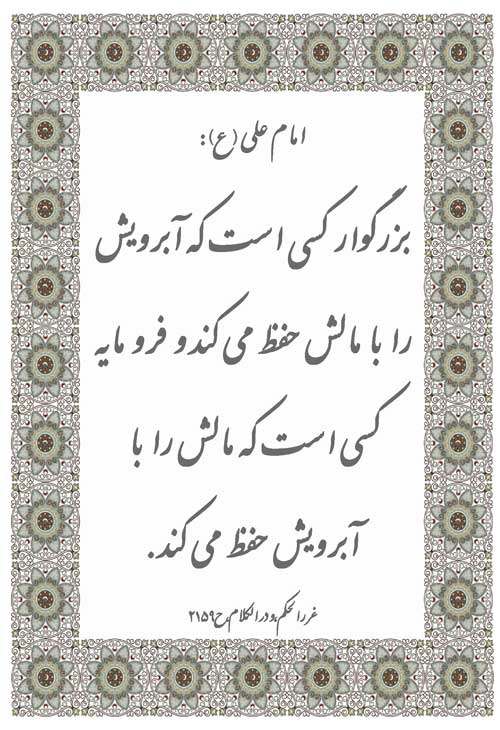 امام علی (ع):
بزرگوار کسی است که آبرویش
را با مالش حفظ می کند و فرومایه
کسی است که مالش را با
آبرویش حفظ می کند.
غررالحکم و دررالکلام، ح۲۱۵۹